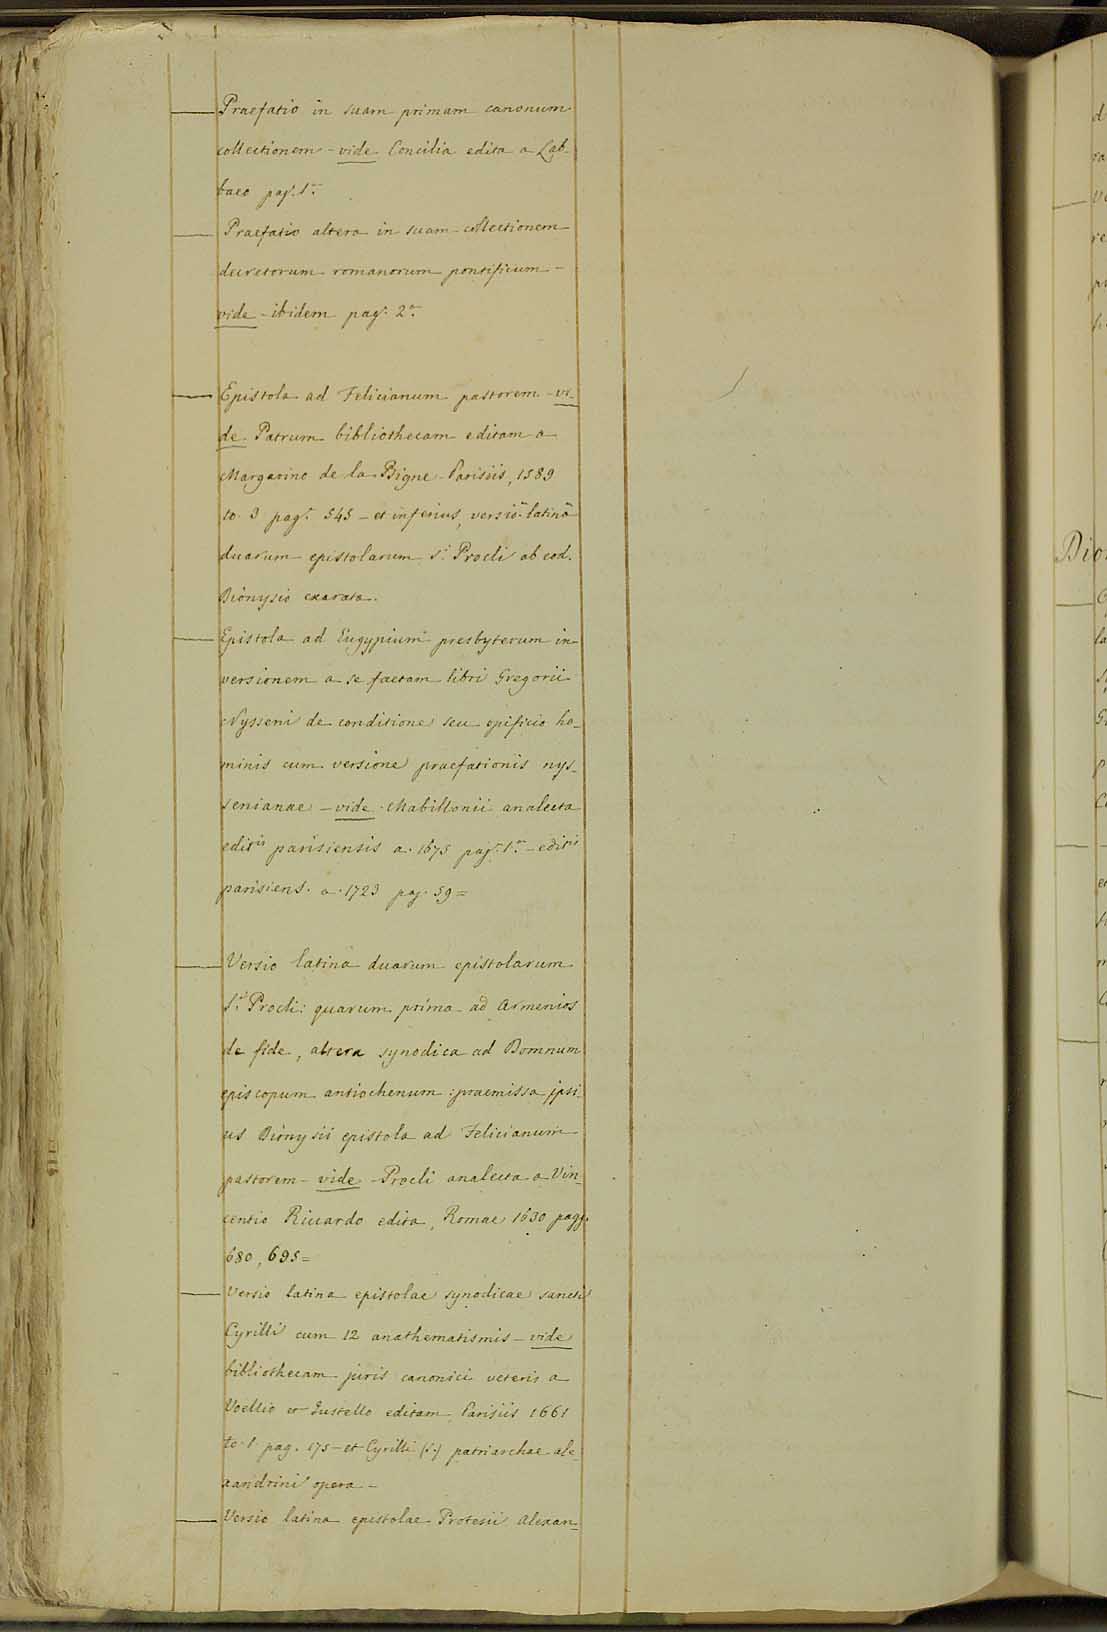 Praefatio in suam primam canonum
collectionem - vide Concilia edita a Lab-
baeo pag. 1.ª
Praefatio altera in suam collectionem
decretorum romanorum pontificum -
vide - ibidem pag. 2.ª
Epistola ad Felicianum pastorem - vi-
de Patrum bibliothecam editam a
Margarino de la Bigne - Parisiis, 1589
to. 3 pag. 545 - et inferius, versio latina
duarum epistolarum S.ⁱ Procli ab eod.
Dionysio exarata.
Epistola ad Eugypium presbyterum in
versionem a se factam libri Gregorii
Nysseni de conditione seu opificio ho-
minis cum versione praefationis nys-
senianae - vide - Mabillonii analecta
editⁱˢ parisiensis a. 1675 pag. 1.ª - editⁱˢ
parisiens. a. 1723 pag. 59 =
Versio latina duarum epistolarum
S.ⁱ Procli: quarum prima ad Armenios
de fide, altera synodica ad Domnum
episcopum antiochenum: praemissa ipsi-
us Dionysii epistola ad Felicianum
pastorem - vide - Procli analecta a Vin-
centio Riccardo edita, Romae 1630 pagg.
680, 695 =
Versio latina epistolae synodicae sancti
Cyrilli cum 12 anathematismis - vide
bibliothecam juris canonici veteris a
Voellio et Justello editam Parisiis 1661
to. 1 pag. 175 - et Cyrilli (S.) patriarchae ale-
xandrini opera -
Versio latina epistolae Protesii alexan-
Dio